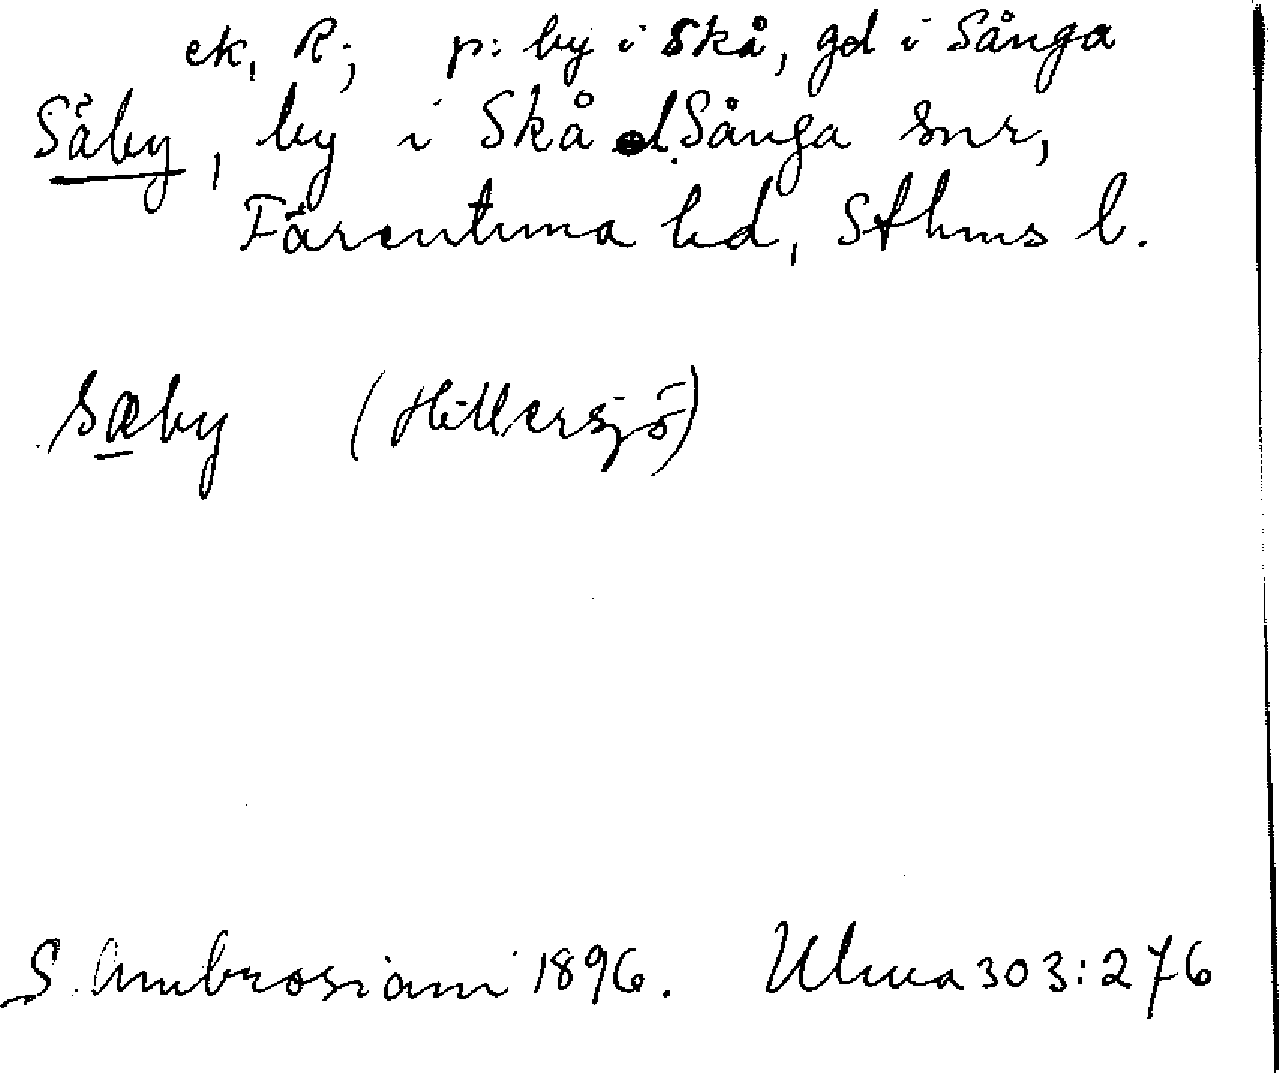 ek, R; p: by i Skå, gd i Sånga
Säby, by i Skå o. Sånga snr,
Färentuna hd, Sthms l.
sæby (Hillersjö)
S. Ambrosiani 1896. Ulma 303:276